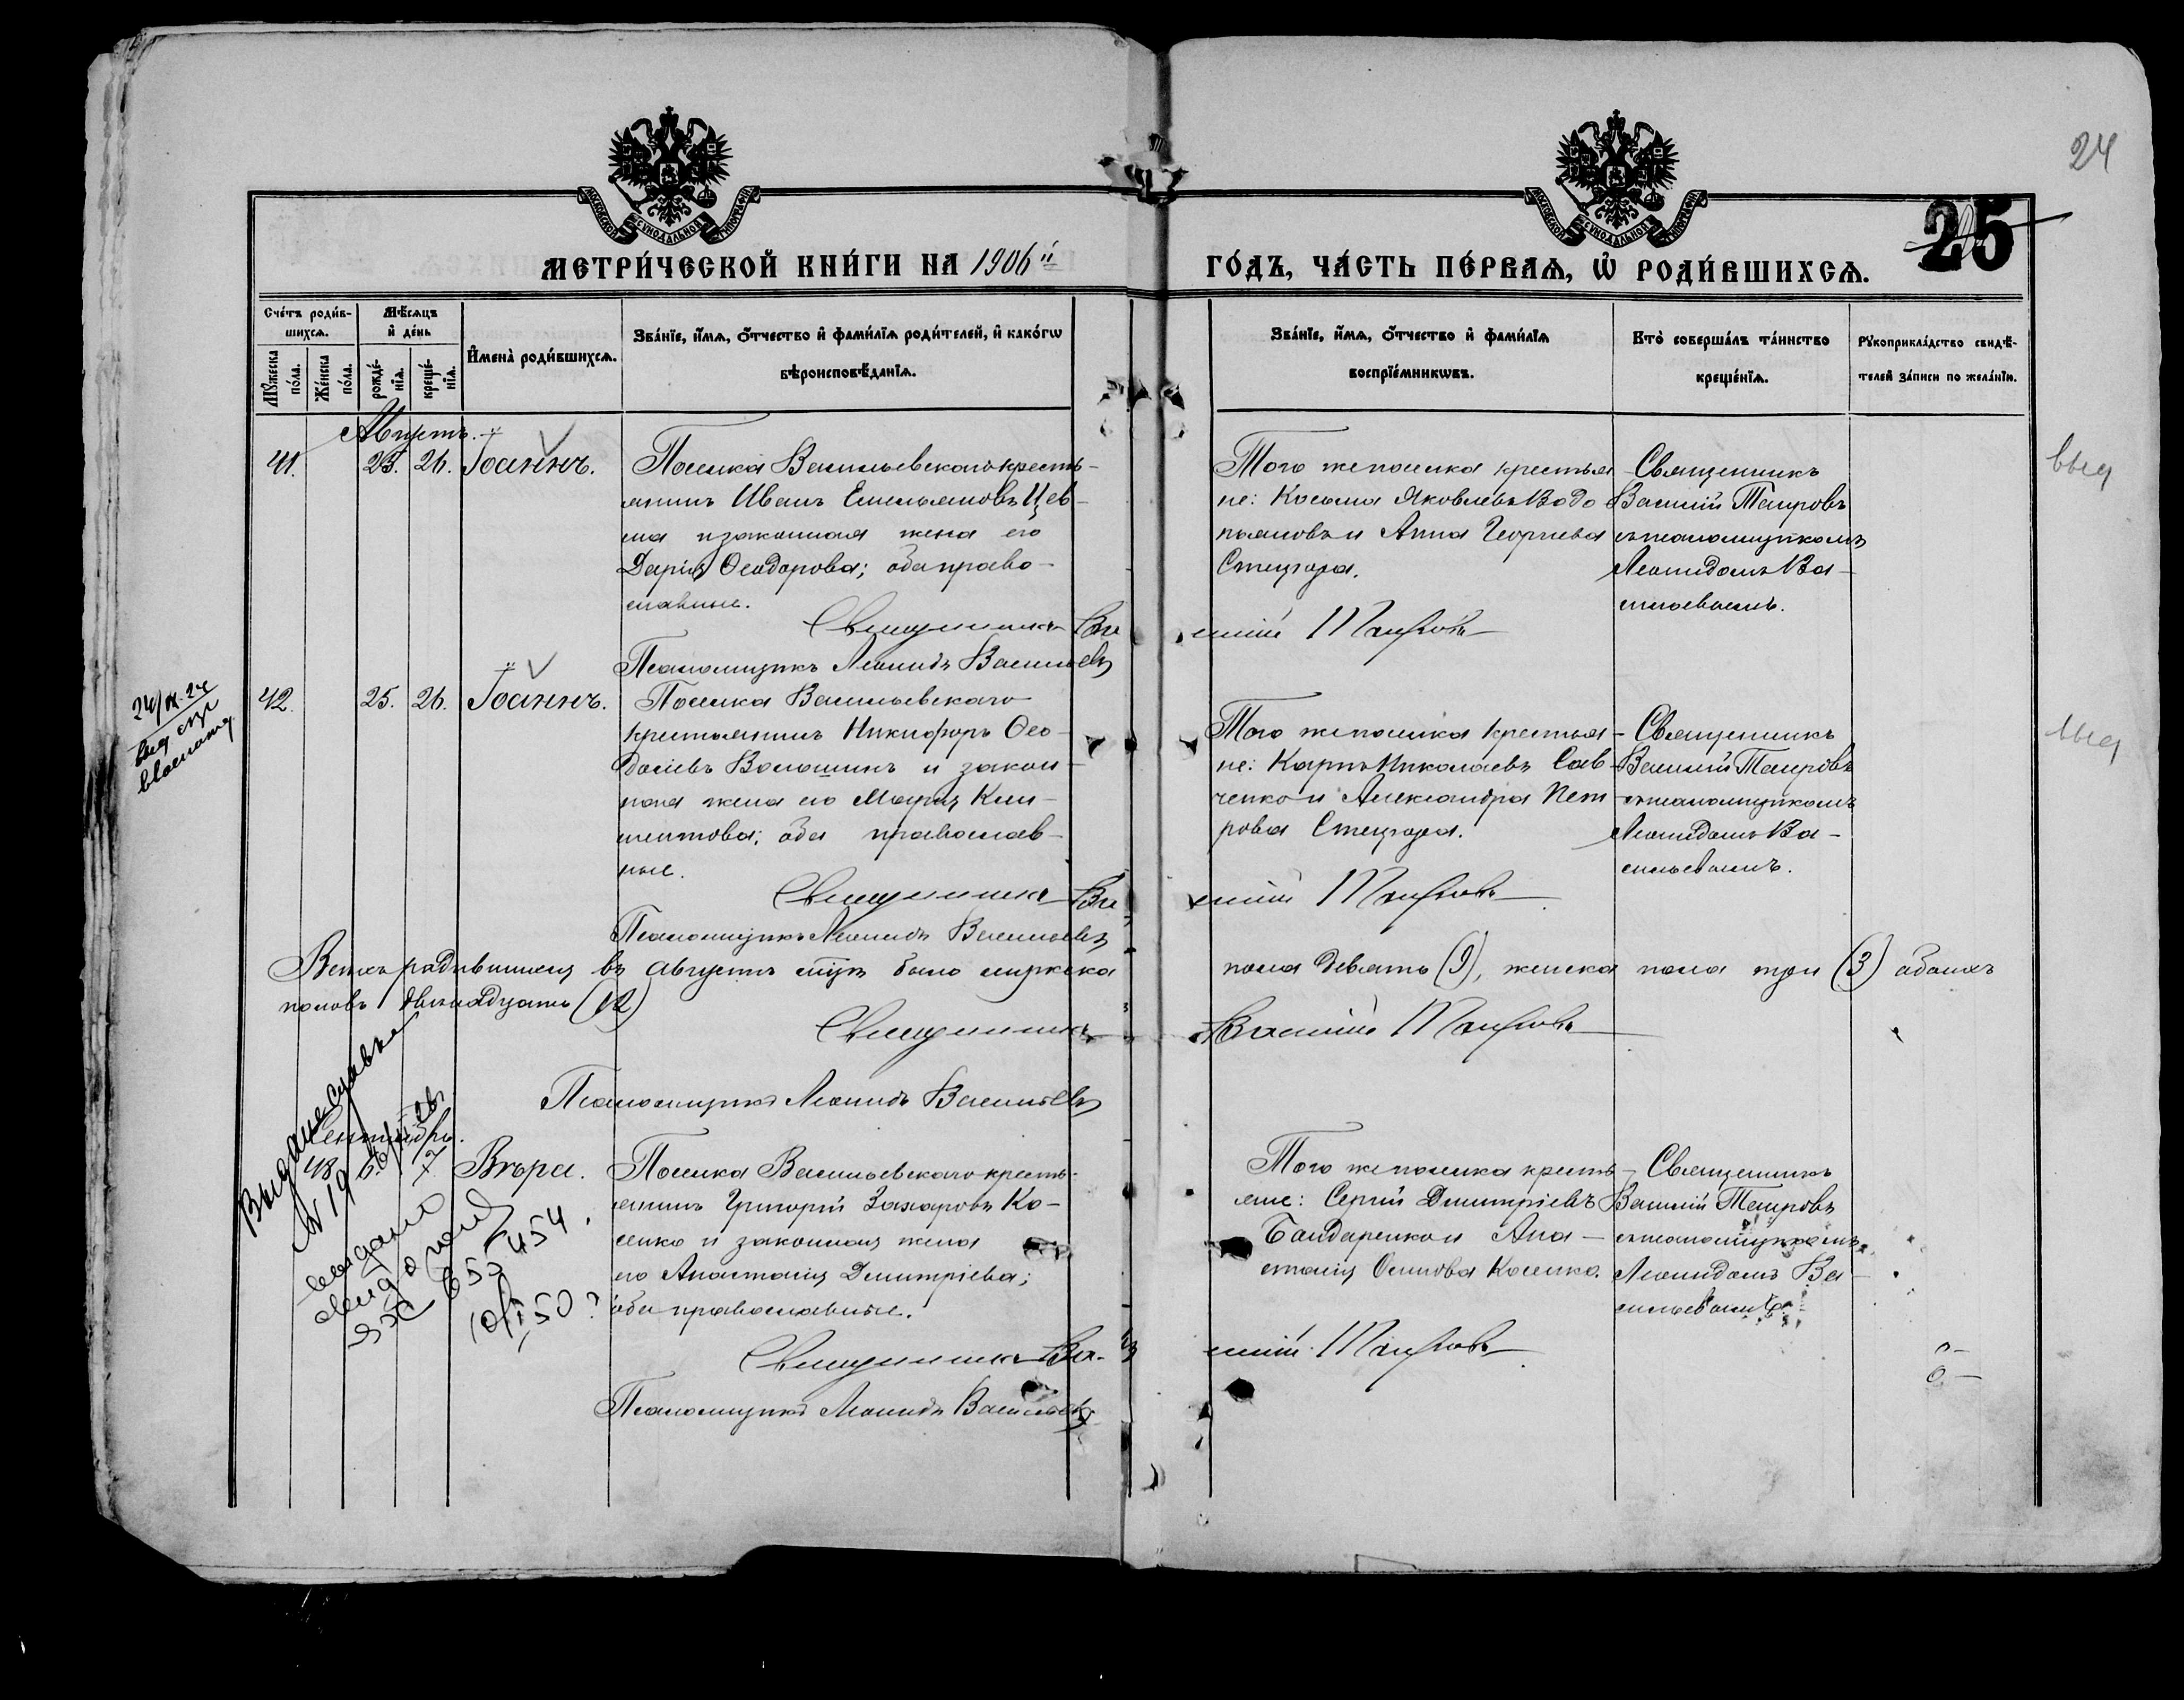 24
25
МЕТРИ́ЧЕСКОЙ КНИ́ГИ НА 1906й
ГО́ДЪ, ЧА́СТЬ ПЕ́РВАѦ, Ѡ҆ РОДИ́ВШИХСѦ.
Сче́тъ роди́в-
шихсѧ.
Мѣ́сѧцъ
и҆ де́нь
Мꙋ́жеска
по́ла.
Же́нска
по́ла.
рожде́-
нїѧ.
креще́-
нїѧ.
И҆мена̀ роди́вшихсѧ.
Зва́нїе, и҆́мѧ, ѻ҆́тчество и҆ фами́лїѧ роди́телей, и҆ како́гѡ
вѣроисповѣ́данїѧ.
Зва́нїе, и҆́мѧ, ѻ҆́тчество и҆ фами́лїѧ
воспрїе́мникѡвъ.
Кто̀ соверша́лъ та́инство
креще́нїѧ.
Рꙋкоприкла́дство свидѣ́-
телей за́писи по жела́нїю.
Августъ.
41.
23. 26.
Іоаннъ.
Поселка Васильевскаго кресть-
янинъ Иванъ Емельяновъ Цев-
ма и законная жена его
Дарія Ѳеодорова; оба право-
славные.
Священникъ Ва
силій Таировъ
Псаломщикъ Леонидъ Васильевъ
Того же поселка крестья
не: Косьма Яковлевъ Водо
пьяновъ и Анна Георгиева
Стецура.
Священникъ
Василій Таировъ
съ псаломщикомъ
Леонидомъ Ва-
сильевымъ.
выд
42.
25. 26.
Іоаннъ.
Поселка Васильевскаго
крестьянинъ Никифоръ Ѳео-
досіевъ Волошинъ и закон-
ная жена его Марія Кли-
ментова; оба православ-
ные.
Священникъ Ва
силій Таировъ
Псаломщикъ Леонидъ Васильевъ
Того же поселка крестья-
не: Карпъ Николаевъ Сав-
ченко и Александра Пет
рова Стецура.
Священникъ
Василій Таировъ
съ псаломщикомъ
Леонидомъ Ва-
сильевымъ.
выд
Всехъ родившихся въ августе мѣсяце было мужеска пола девять (9), женска пола три (3) обоихъ
половъ двенадцать (12)
Священникъ Василій Таировъ
Псаломщикъ Леонидъ Васильевъ
Сентябрь.
Вѣра.
Поселка Васильевскаго кресть-
янинъ Григорій Захаровъ Ко-
сенко и законная жена
его Анастасія Димитріева;
оба православные.
Священникъ Ва-
силій Таировъ
Псаломщикъ Леонидъ Васильевъ
Того же поселка кресть-
яне: Сергій Димитріевъ
Бандаренко и Ана-
стасія Осипова Косенко.
Священникъ
Василій Таировъ
съ псаломщикомъ
Леонидомъ Ва-
сильевымъ
выдано